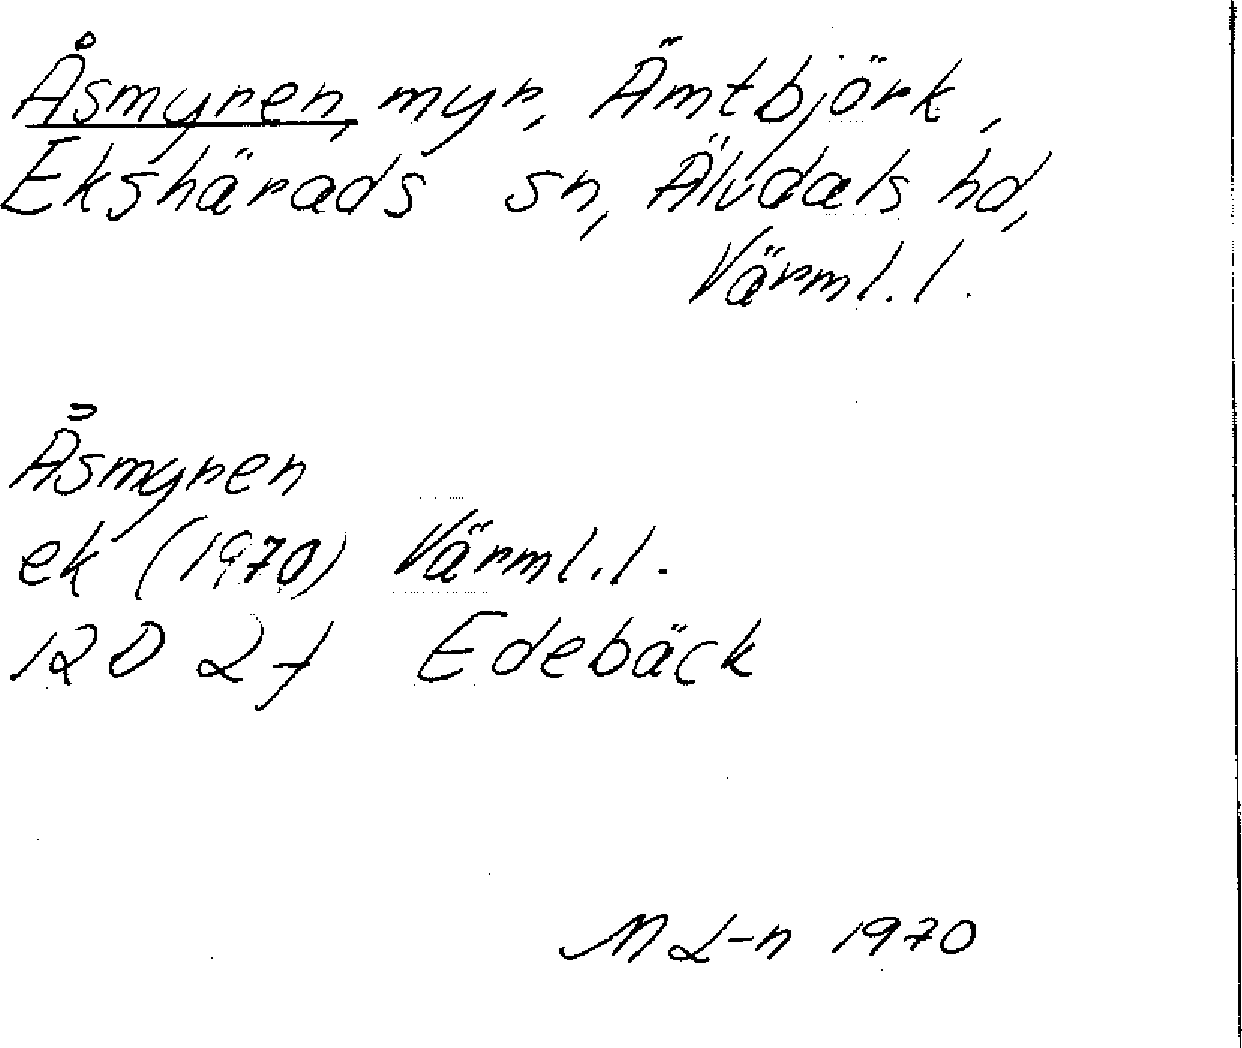 Åsmyren, myr, Ämtbjörk,
Ekshärads sn, Älvdals hd,
Värml. l.
Åsmyren
ek (1970) Värml. l.
12D 2f Edebäck
M L-n 1970